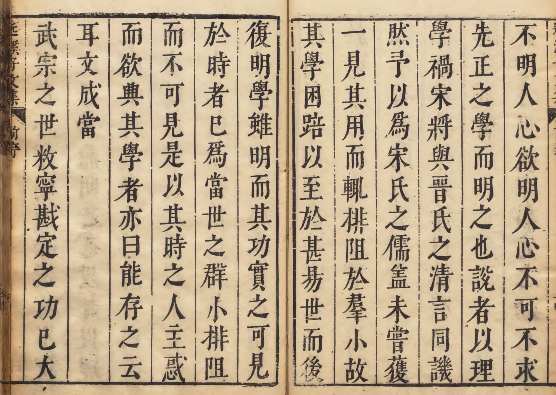 不明人心欲明人心不可不求
先正之學而明之也說者以理
學禍宋將與晋氏之清言同譏
然予以爲宋氏之儒盖未嘗獲
一見其用而輒排阻於羣小故
其學困踣以至於甚易世而後
復明學雖明而其功實之可見
於時者已爲當世之群小排阻
而不可見是以其時之人主惑
而欲典其學者亦曰能存之云
耳文成當
武宗之世敉寧戡定之功已大